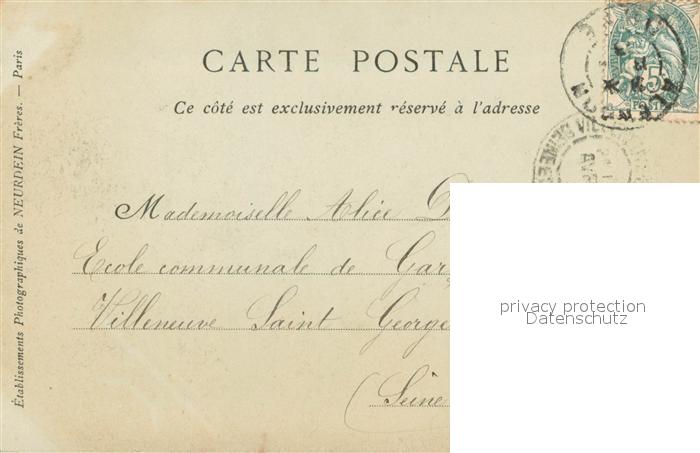 CARTE POSTALE
Ce côté est exclusivement réservé à l'adresse
Mademoiselle Alice
Ecole communale de
Villeneuve Saint George
(Seine
Établissements Photographiques de NEURDEIN Frères. — Paris
5
POSTE
privacy protection
Datenschutz